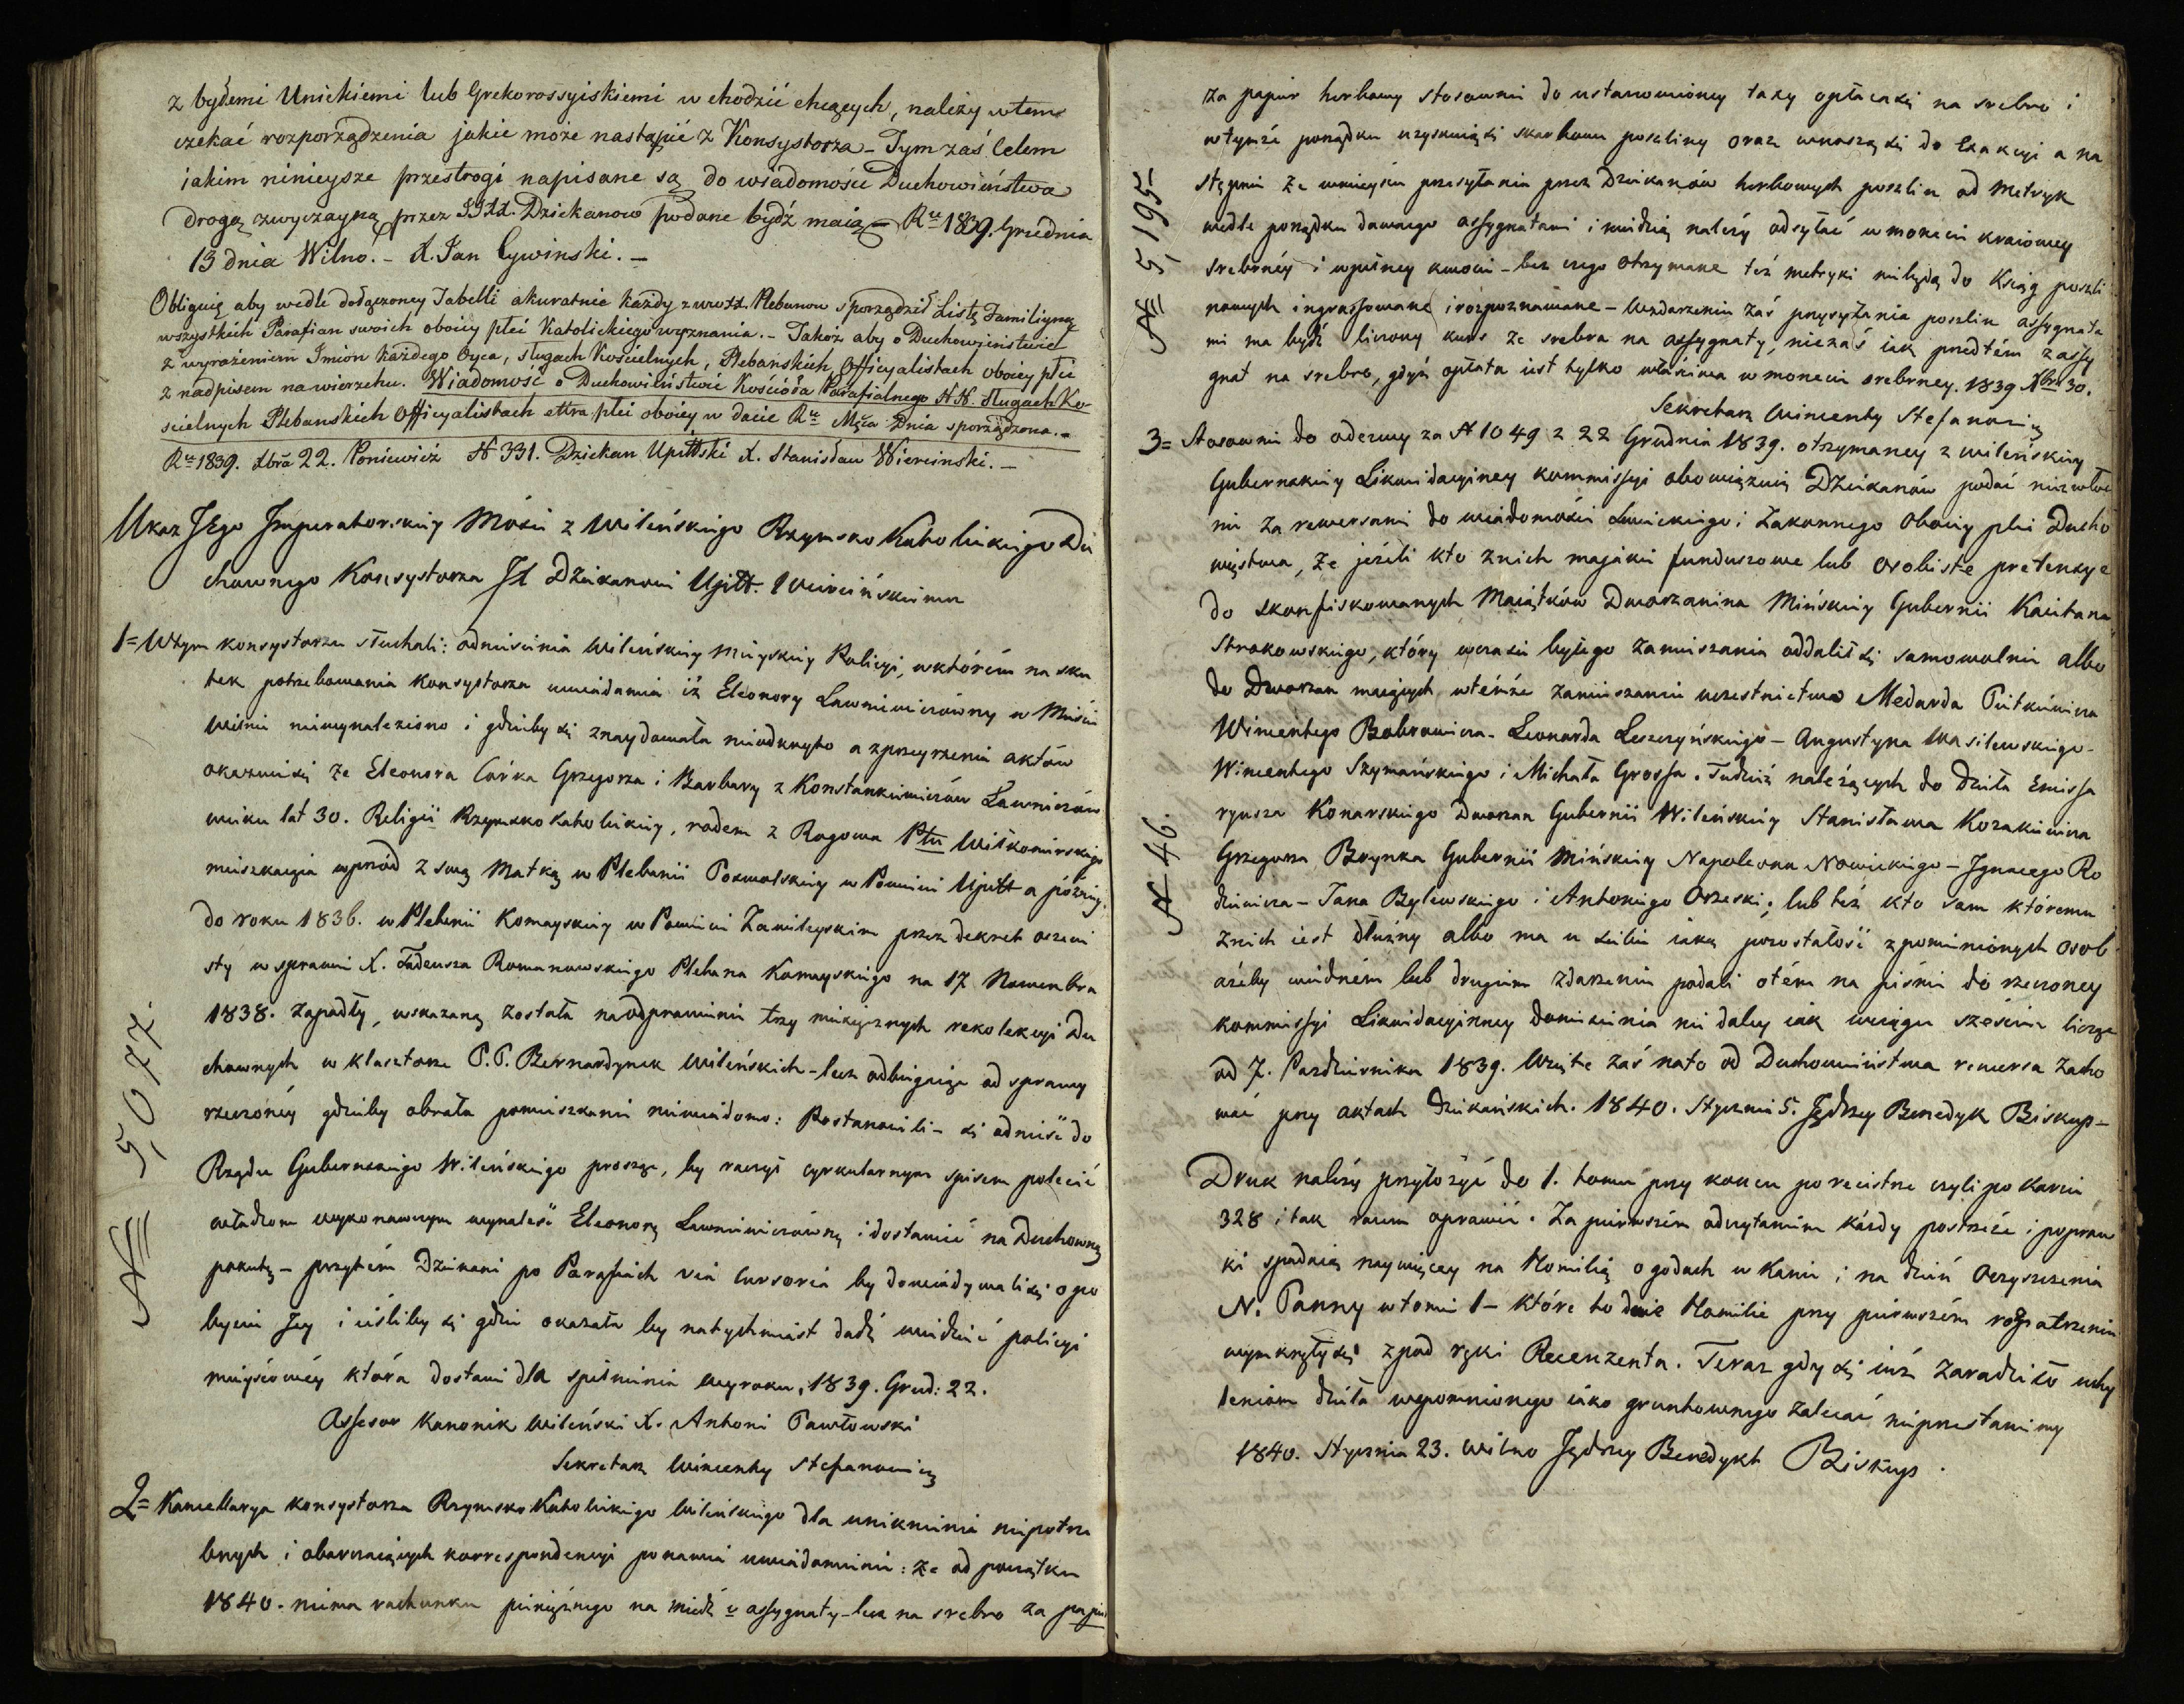 z byłemi Unickiemi lub Grekorossyiskiemi wchodzić chcących, należy wtem
czekać rozporządzenia jakie może nastąpić z Konsystorza – Tym zaś Celem
iakim ninieysze przestrogi napisane są do wiadomości Duchowieństwa
drogą zwyczayną przez JJXX. Dziekanow podane bydź maią – Ru 1839. Grudnia
13 dnia Wilno. – X. Jan Cywinski. –
Obliguię aby wedle dołączoney Tabelli akuratnie każdy z WWXX. Plebanow sporządził Listę Familiyną
wszystkich Parafian swoich oboiey płci Katolickiego wyznania. – Takoż aby o Duchowieństwie
z wyrażeniem Imion każdego Oyca, sługach Kościelnych, Plebańskich Officyalistach oboiey płci
z nadpisem na wierzchu. Wiadomość o Duchowieństwie Kościoła Parafialnego NN. Sługach Ko-
scielnych Plebanskich Officyalistach ettra płci oboiey w dacie Ru Mca Dnia sporządzona. –
Ru 1839. Xbra 22. Poniewież N 331. Dziekan Upittski X. Stanisław Wiercinski. –
Ukaz JEgo Jmperatorskiey Mości z Wileńskiego Rzymsko Katolickiego Du
chownego Konsystorza JX Dziekanowi Upitt. Wiercińskiemu
N 5,077.
1= W tym konsystorzu słuchali: odniesienia Wileńskiey mieyskiey Policyi, w którém na sku
tek potrzebowania Konsystorza uwiadamia iż Eleonory Ławniewiczówny w Mieście
Wilnie niewynaleziono i gdzieby się znaydowała nieodkryto a z przeyrzenia aktów
okazuie się że Eleonora Córka Grzegorza i Barbary z Konstankiewiczów Ławniczów
wieku lat 30. Religii Rzymsko Katolickiey, rodem z Rogowa Ptu Wiłkomirskiego
mieszkaiąca wprzód z swą Matką w Plebanii Poswolskiey w Powiecie Upitt a późniey
do roku 1836. w Plebanii Komayskiey w Powiecie Zawileyskim przez dekret oczewi
sty w sprawie X. Tadeusza Romanowskiego Plebana Komayskiego na 17 Nowembra
1838. zapadły, wskazaną została na odprawienie trzy miesięcznych rekolekcyi Du
chownych w klasztorze P.P. Bernardynek Wileńskich – lecz odbiegaiąc od sprawy
rzeczonéy gdzieby obrała pomieszkanie niewiadomo: Postanowili – się odnieść do
Rządu Gubernskiego Wileńskiego prosząc, by raczył cyrkularnym spisem polecić
władzom wykonawczym wynaleść Eleonorę Ławniewiczównę i dostawić na Duchowną
pokutę – przytém Dziekani po Parafiach via Cursoria by dowiadywali się o po
byciu Jey i ieśliby się gdzie okazała by natychmiast dadź wiedzieć policyi
mieyscowéy która dostawi dla spełnienia wyroku. 1839. Grud: 22.
Assesor Kanonik Wileński X. Antoni Pawłowski
Sekretarz Wincenty Stefanowicz
2= Kancellarya konsystorza Rzymsko Katolickiego Wileńskiego dla uniknienia niepotrze
bnych i obarczaiących korrespondencyi ponawia uwiadomienie: że od początku
1840. niema rachunku pieniężnego na miedź i assygnaty – lecz na srebro za papier
N 5,195
za papier herbowy stosownie do ustanowioney taxy opłaca się na srebro i
w tymże porządku uzyskuią się skarbowe poszliny oraz wnoszą się do Exakcyi a na
stępnie że w mieyscu przesyłania przez Dziekanów herbowych poszlin od Metryk
wedle porządku dawnego assygnatami i miedzią należy odsyłać w monecie kraiowey
srebrnéy i wpełney kwocie – bez czego otrzymane też metryki niebędą do Ksiąg poszli
nowych ingrossowane i rozpoznawane – Wzdarzeniu zaś przysyłania poszlin assygnata
mi ma bydź liczony kurs ze srebra na assygnaty, niezaś iak przedtém z assy
gnat na srebro, gdyż opłata iest tylko właściwa w monecie srebrney. 1839 Xbra 30.
Sekretarz Wincenty Stefanowicz
N 46.
3= Stosownie do odezwy za N 1049 z 22 Grudnia 1839. otrzymaney z wileńskiey
Gubernskiey Likwidacyiney kommissyi obowiązuię Dziekanów podać niezwłocz
nie za rewersami do wiadomości Swieckiego i Zakonnego oboiey płci Ducho
wieństwa, że jeżeli kto znich majakie funduszowe lub osobiste pretensye
do skonfiskowanych Maiątków Dworzanina Mińskiey Gubernii Kaietana
Strokowskiego, który wczasie byłego zamieszania oddalił się samowolnie albo
do Dworzan maiących wtémże zamieszaniu uczestnictwo Medarda Pietkiewicza
Wincentego Bobrowicza – Leonarda Leszczyńskiego – Augustyna Wasilewskiego –
Wincentego Szymańskiego i Michała Grossa. Tudzież należących do dzieła Emissa
ryusza Konarskiego Dworzan Gubernii Wileńskiey Stanisława Kozakiewicza
Grzegorza Brynka Gubernii Mińskiey Napoleona Nowickiego – Jgnacego Ro
dziewicza – Jana Bylewskiego i Antoniego Orzeski; lub też kto sam któremu
znich iest dłużny albo ma u siebie iaką pozostałość zpomienionych osob
ażeby wiednem lub drugim zdarzeniu podali otém na piśmie do rzeczoney
kommissyi Likwidacyinney doniesienia nie daley iak wciągu sześciu licząc
od 7. Pazdziernika 1839. Wzięte zaś nato od Duchowieństwa rewersa zacho
wać przy aktach dziekańskich. 1840. Stycznia 5. Jędrzey Benedykt Biskup –
Druk należy przyłożyć do 1. tomu przy koncu po reiestrze czyli po karcie
328 i tak razem oprawić. Za pierwszém odczytaniem każdy postrzeże i popraw
ki spadaią naywięcey na Homilię o godach w Kanie i na dzień Oczyszczenia
N. Panny w tomie 1 – które to dwie Homilie przy pierwszém rospatrzeniu
wymknęły się zpod ręki Recenzenta. Teraz gdy się iuż zaradziło uchy
bieniom dzieła wspomnionego iako gruntownego zalecać nieprzestaniemy
1840. Stycznia 23. Wilno Jędrzey Benedykt Biskup.